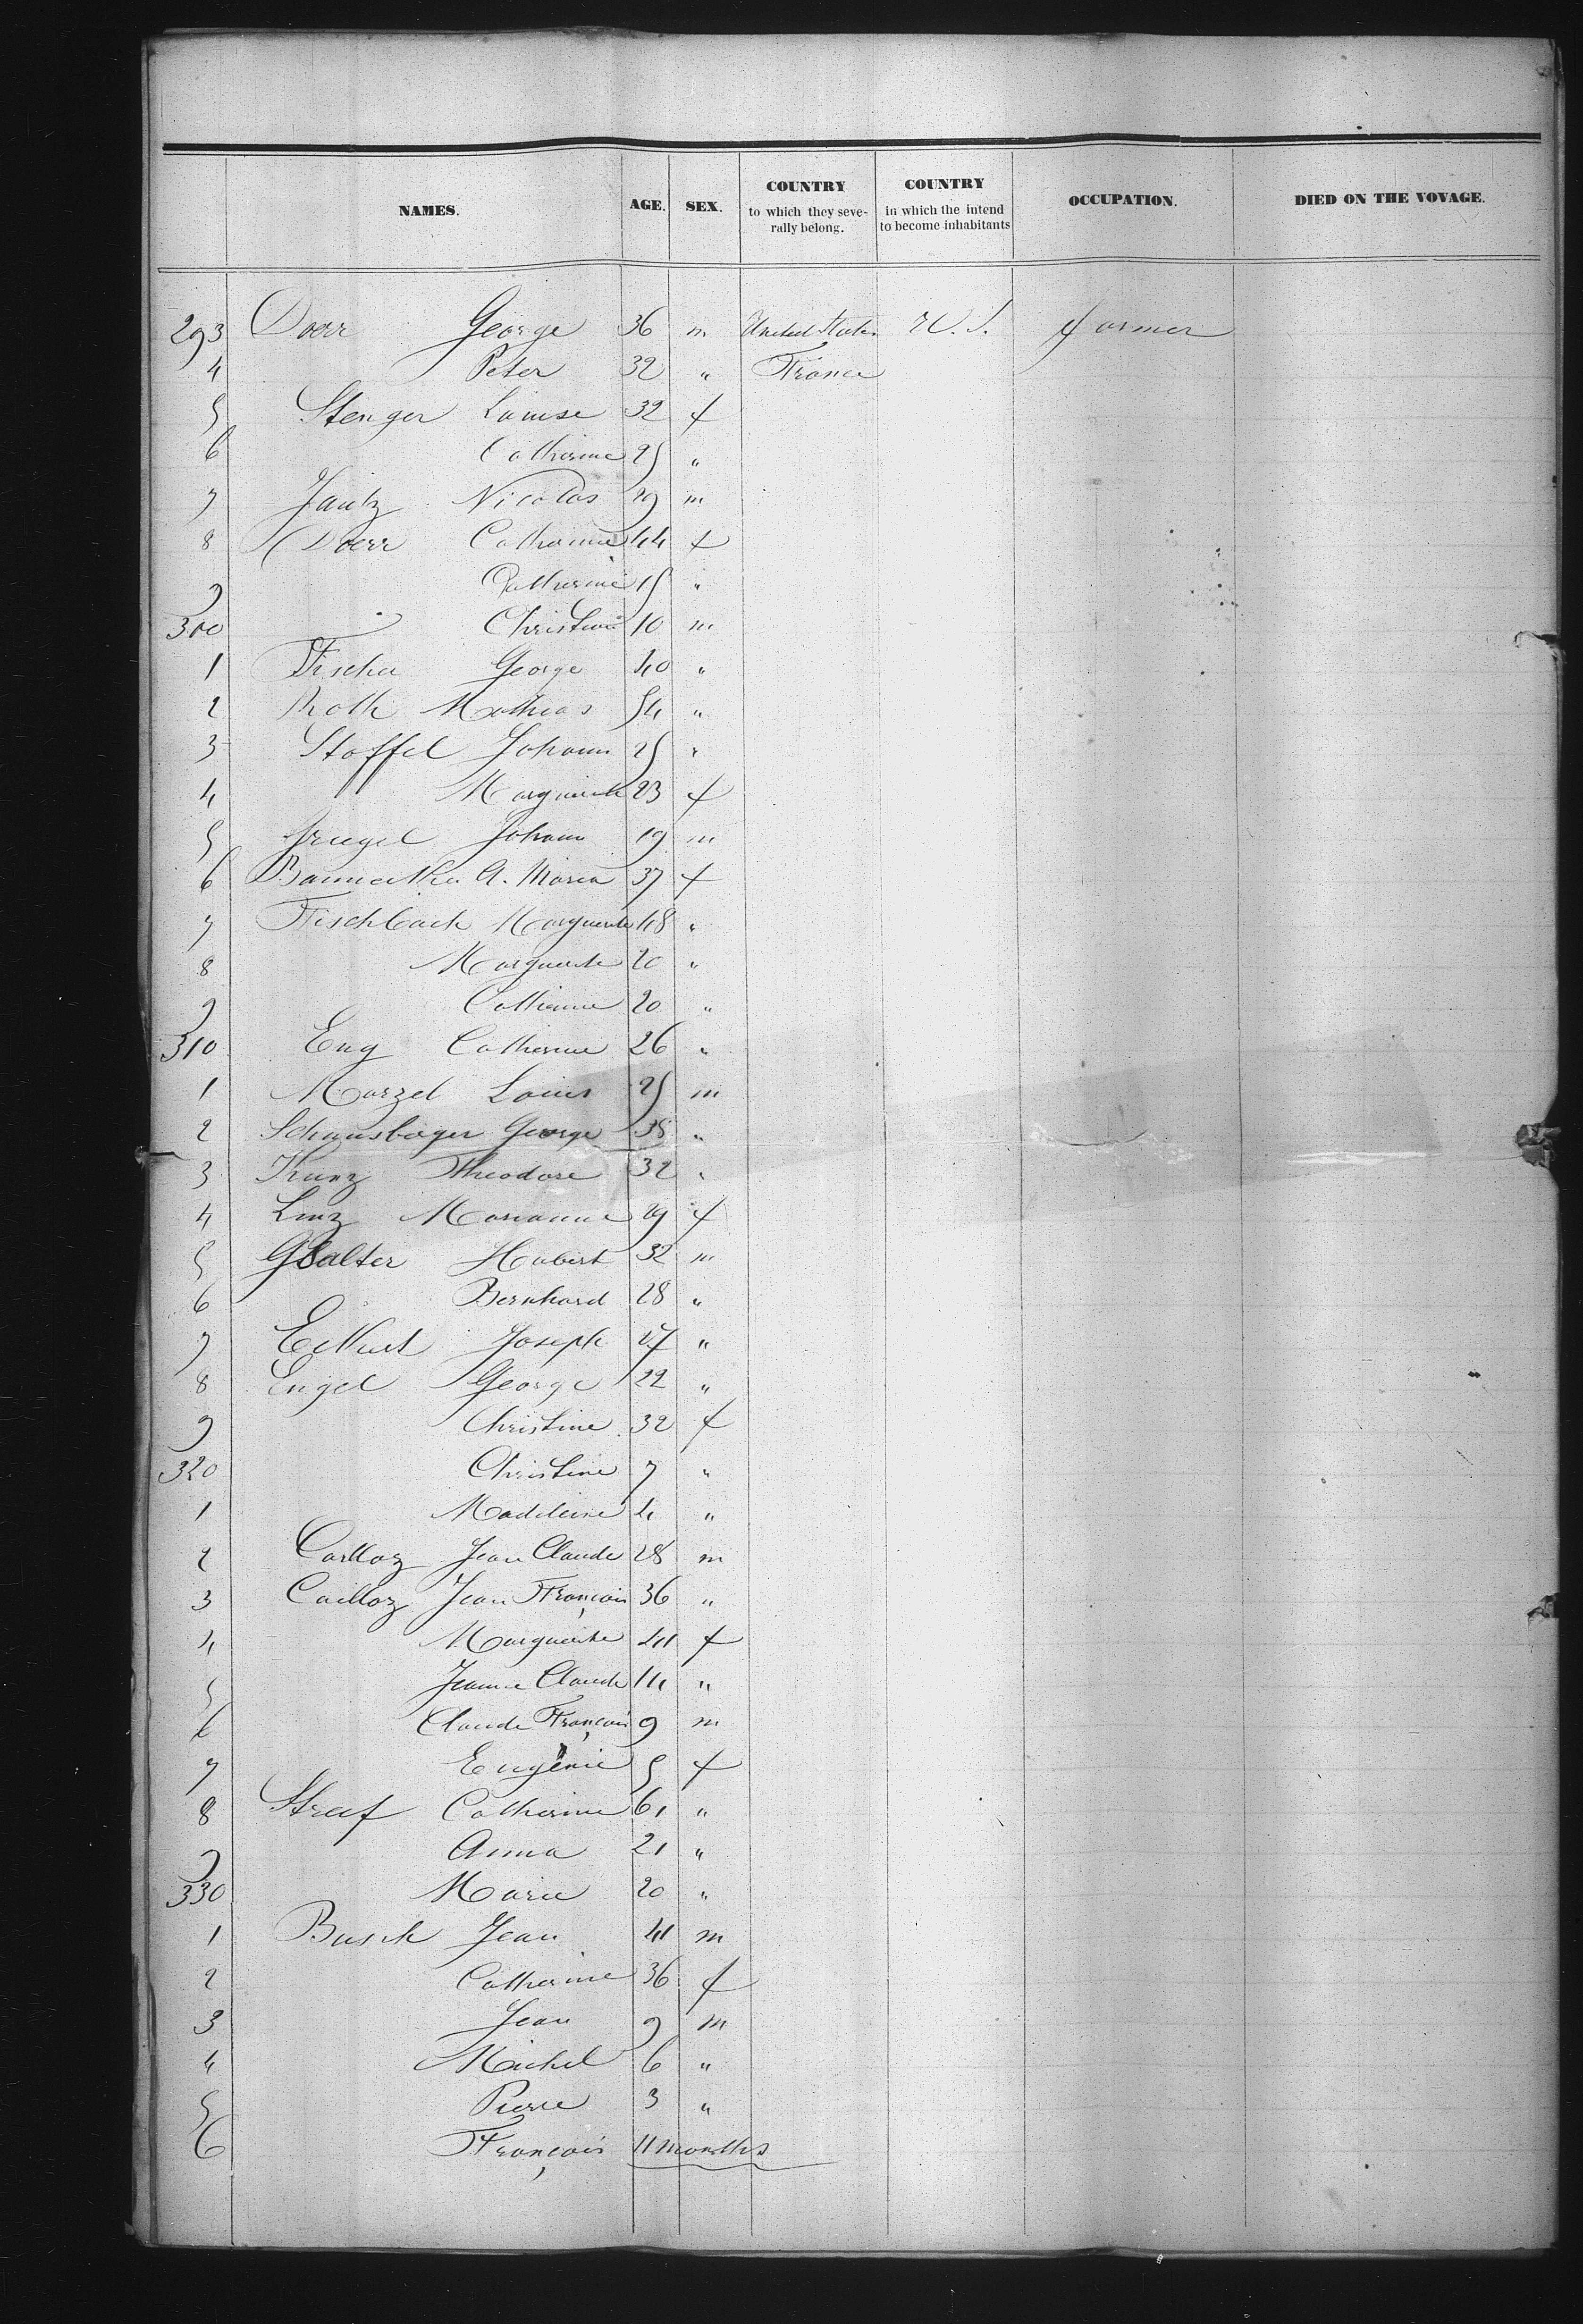 NAMES. AGE. SEX. COUNTRY to which they seve- rally belong. COUNTRY in which the intend to become inhabitants OCCUPATION. DIED ON THE VOYAGE.
293 Doerr George 36 m United States U. S. farmer
4 Peter 32 " France
5 Stenger Louise 32 f
6 Catherine 25 "
7 Jantz Nicolas 29 m
8 Doerr Catherine 44 f
9 Catherine 15 "
300 Christian 10 m
1 Fischer George 40 "
2 Roth Mathias 54 "
3 Stoffel Johann 25 "
4 Marguerite 23 f
5 Johann 19 m
6 A. Maria 37 f
7 Fischbach Marguerite 48 "
8 Marguerite 20 "
9 Catherine 20 "
310 Eng Catherine 26 "
1 Marzel Louis 25 m
2 George 38 "
3 Kunz Theodore 32 "
4 Linz Marianne 29 f
5 Hubert 32 m
6 Bernhard 28 "
7 Joseph 27 "
8 Engel George 22 "
9 Christine 32 f
320 Christine 7 "
1 Madeleine 4 "
2 Cailloz Jean Claude 28 m
3 Cailloz Jean François 36 "
4 Marguerite 41 f
5 Jeanne Claude 14 "
6 Claude François 9 m
7 Eugénie 5 f
8 Streif Catherine 61 "
9 Anna 21 "
330 Marie 20 "
1 Busch Jean 41 m
2 Catherine 36 f
3 Jean 9 m
4 Michel 6 "
5 Pierre 3 "
6 François 11 months